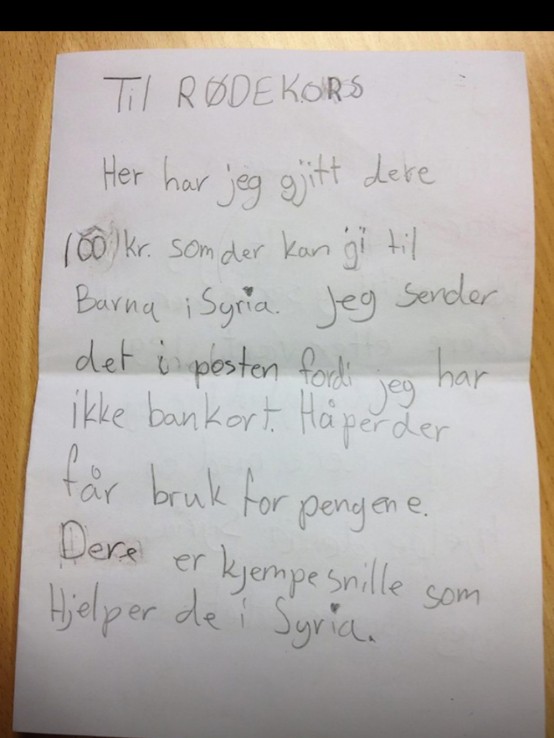 Til RØDEKORS
Her har jeg gjitt dere
100 kr. som der kan gi til
Barna i Syria. Jeg sender
det i posten fordi jeg har
ikke bankort. Håper der
får bruk for pengene.
Dere er kjempesnille som
Hjelper de i Syria.